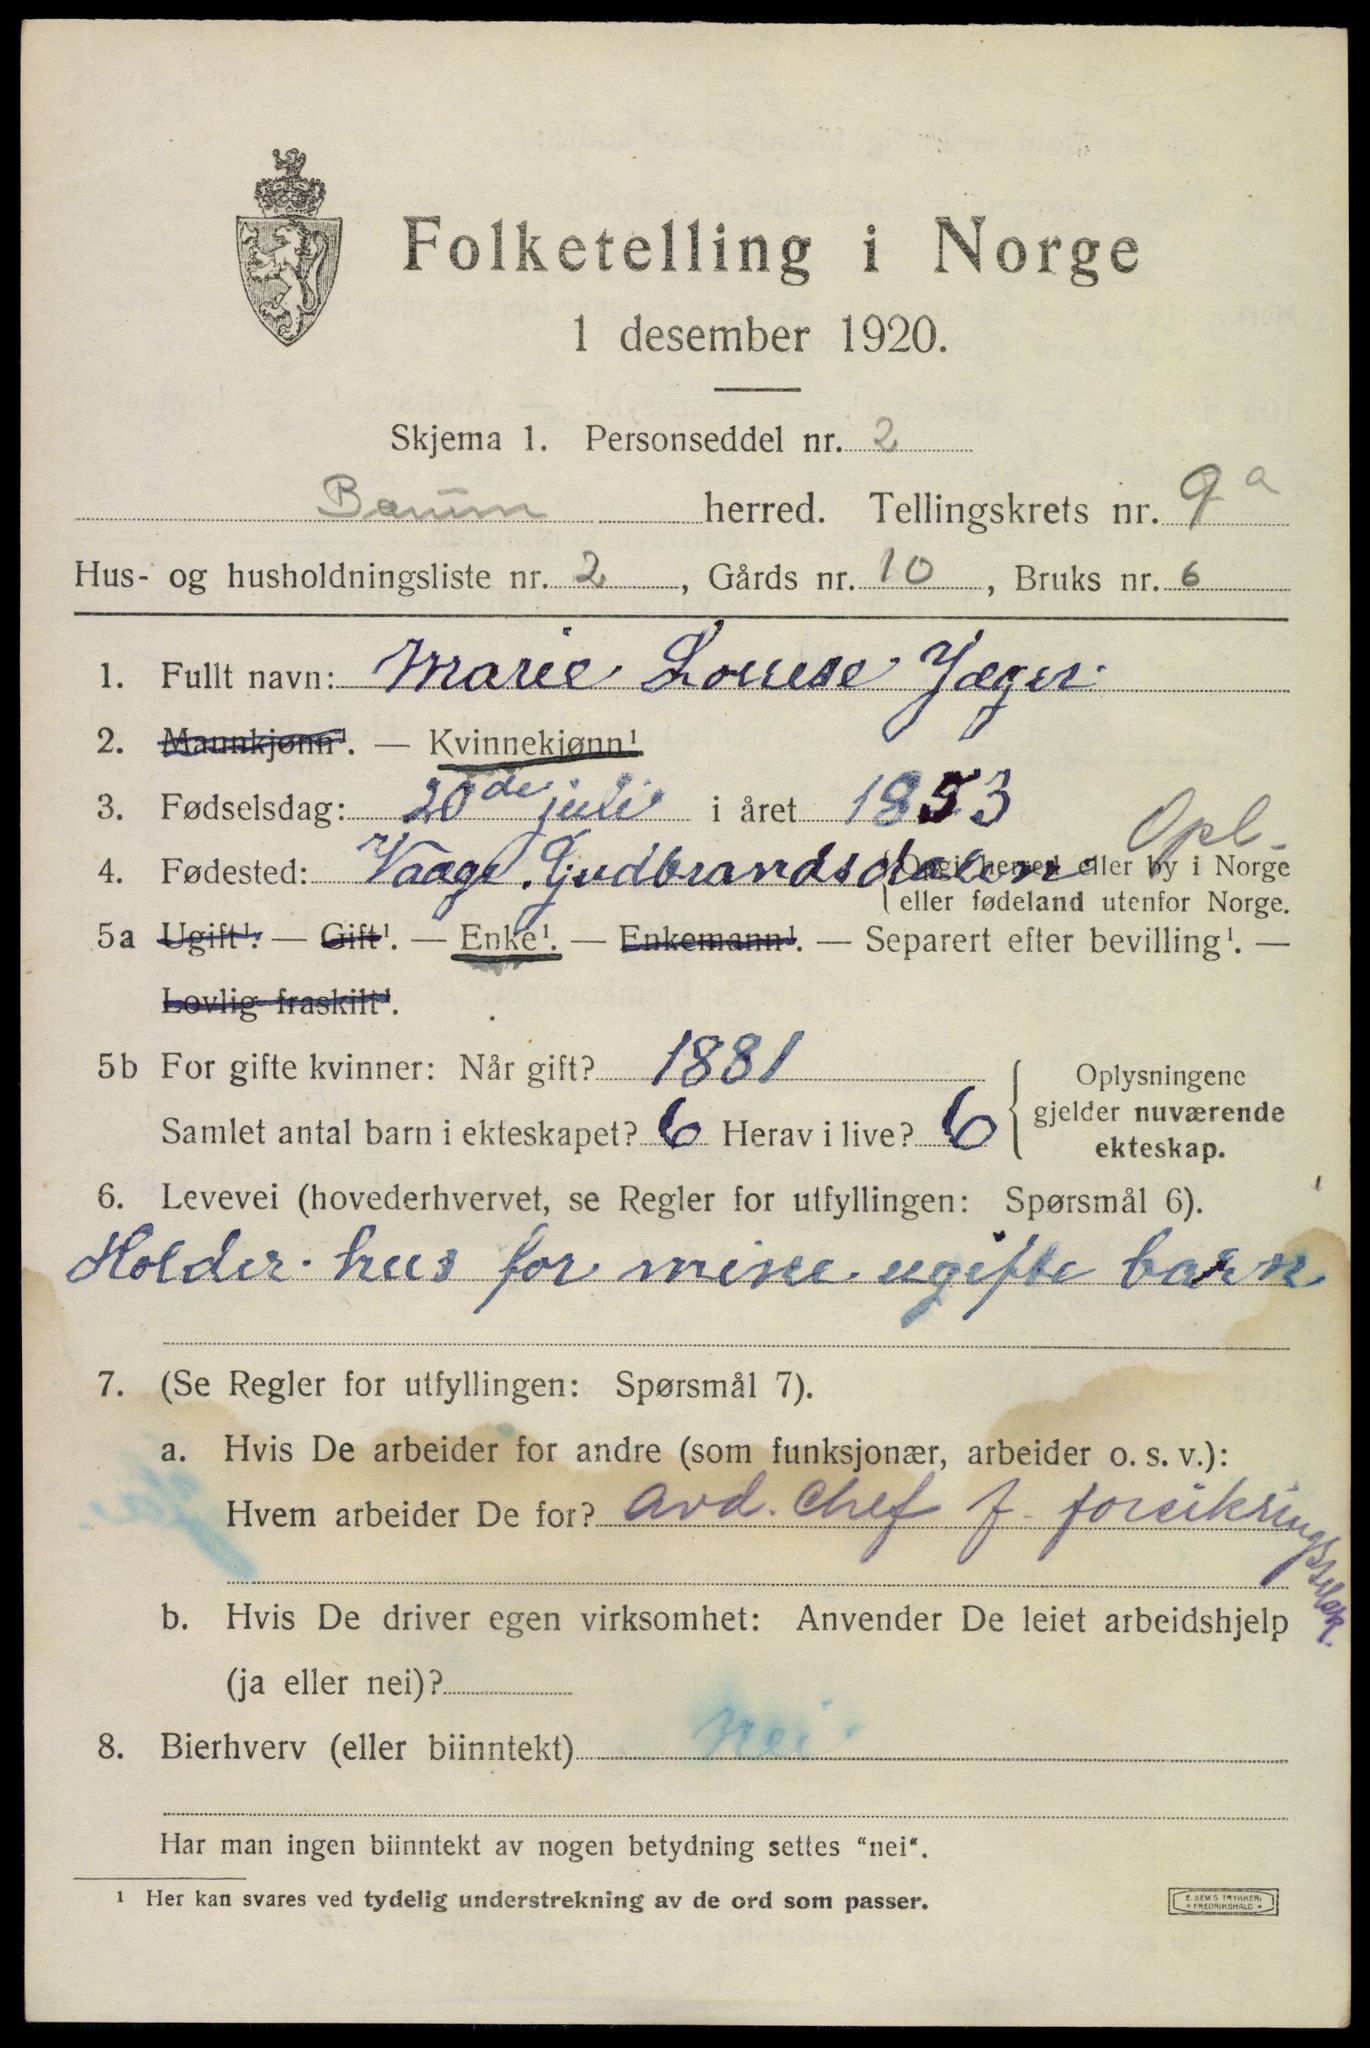 Folketelling i Norge
1 desember 1920.
Skjema 1. Personseddel nr. 2
Bærum herred. Tellingskrets nr. 9a
Hus- og husholdningsliste nr. 2, Gårds nr. 10, Bruks nr. 6
1. Fullt navn: Marie Louise Jæger
2. Mannkjønn¹. — Kvinnekjønn¹
3. Fødselsdag: 20de juli i året 1853
Opl.
4. Fødested: Vaage. Gudbrandsdalen {Opgi herred eller by i Norge
eller fødeland utenfor Norge.
5a Ugift¹. — Gift¹. — Enke¹. — Enkemann¹. — Separert efter bevilling¹. —
Lovlig fraskilt¹.
5b For gifte kvinner: Når gift? 1881 Oplysningene
gjelder nuværende
Samlet antal barn i ekteskapet? 6 Herav i live? 6 ekteskap.
6. Levevei (hovederhvervet, se Regler for utfyllingen: Spørsmål 6).
Holder hus for mine ugifte barn
7. (Se Regler for utfyllingen: Spørsmål 7).
a. Hvis De arbeider for andre (som funksjonær, arbeider o. s. v.):
Hvem arbeider De for? avd. chef f. forsikringsselsk.
b. Hvis De driver egen virksomhet: Anvender De leiet arbeidshjelp
(ja eller nei)?
8. Bierhverv (eller biinntekt) nei
Har man ingen biinntekt av nogen betydning settes "nei".
¹ Her kan svares ved tydelig understrekning av de ord som passer.
E. SEM'S TRYKKERI
FREDRIKSHALD